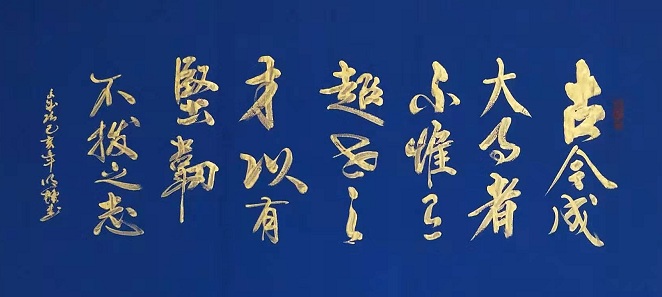 古今成
大事者
不惟有
超世之
才以有
堅韌
不拔之志
己亥年